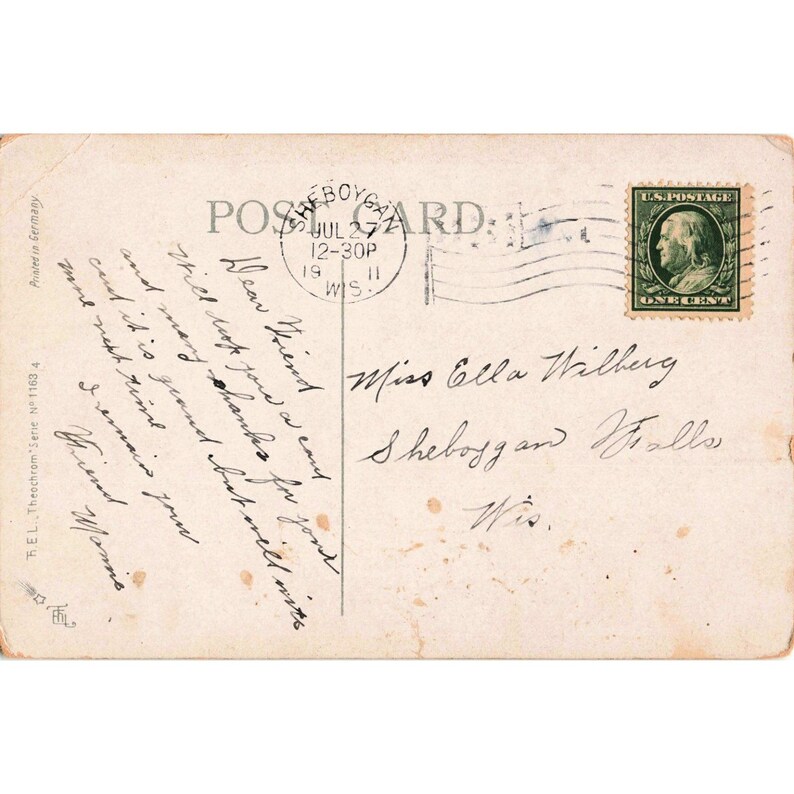 POST CARD.
SHEBOYGAN
JUL 27
12-30P
19 11
WIS.
U.S. POSTAGE
ONE CENT
Printed in Germany.
T.H.E.L. „Theochrom" Serie No 1163 4
THEL
Dear Friend
Will drop you a card
and many thanks for your
card it is grand but will write
more next time
I remain your
Friend Mamie
Miss Ella Wilberg
Sheboygan Falls
Wis.